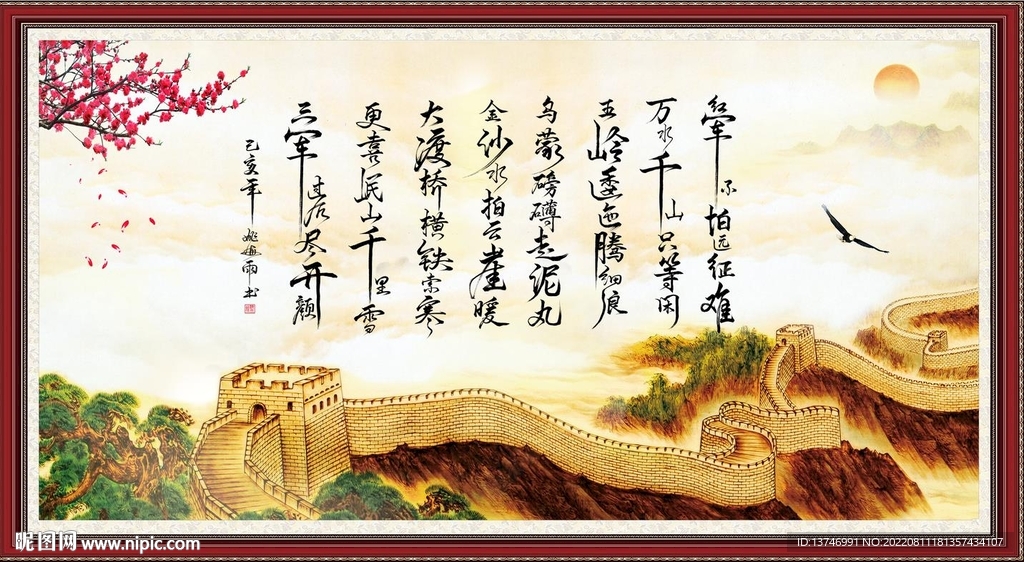 红军不怕远征难
万水千山只等闲
五岭逶迤腾细浪
乌蒙磅礴走泥丸
金沙水拍云崖暖
大渡桥横铁索寒
更喜岷山千里雪
三军过后尽开颜
己亥年
昵图网 www.nipic.com
ID:13746991 NO:20220811181357434107